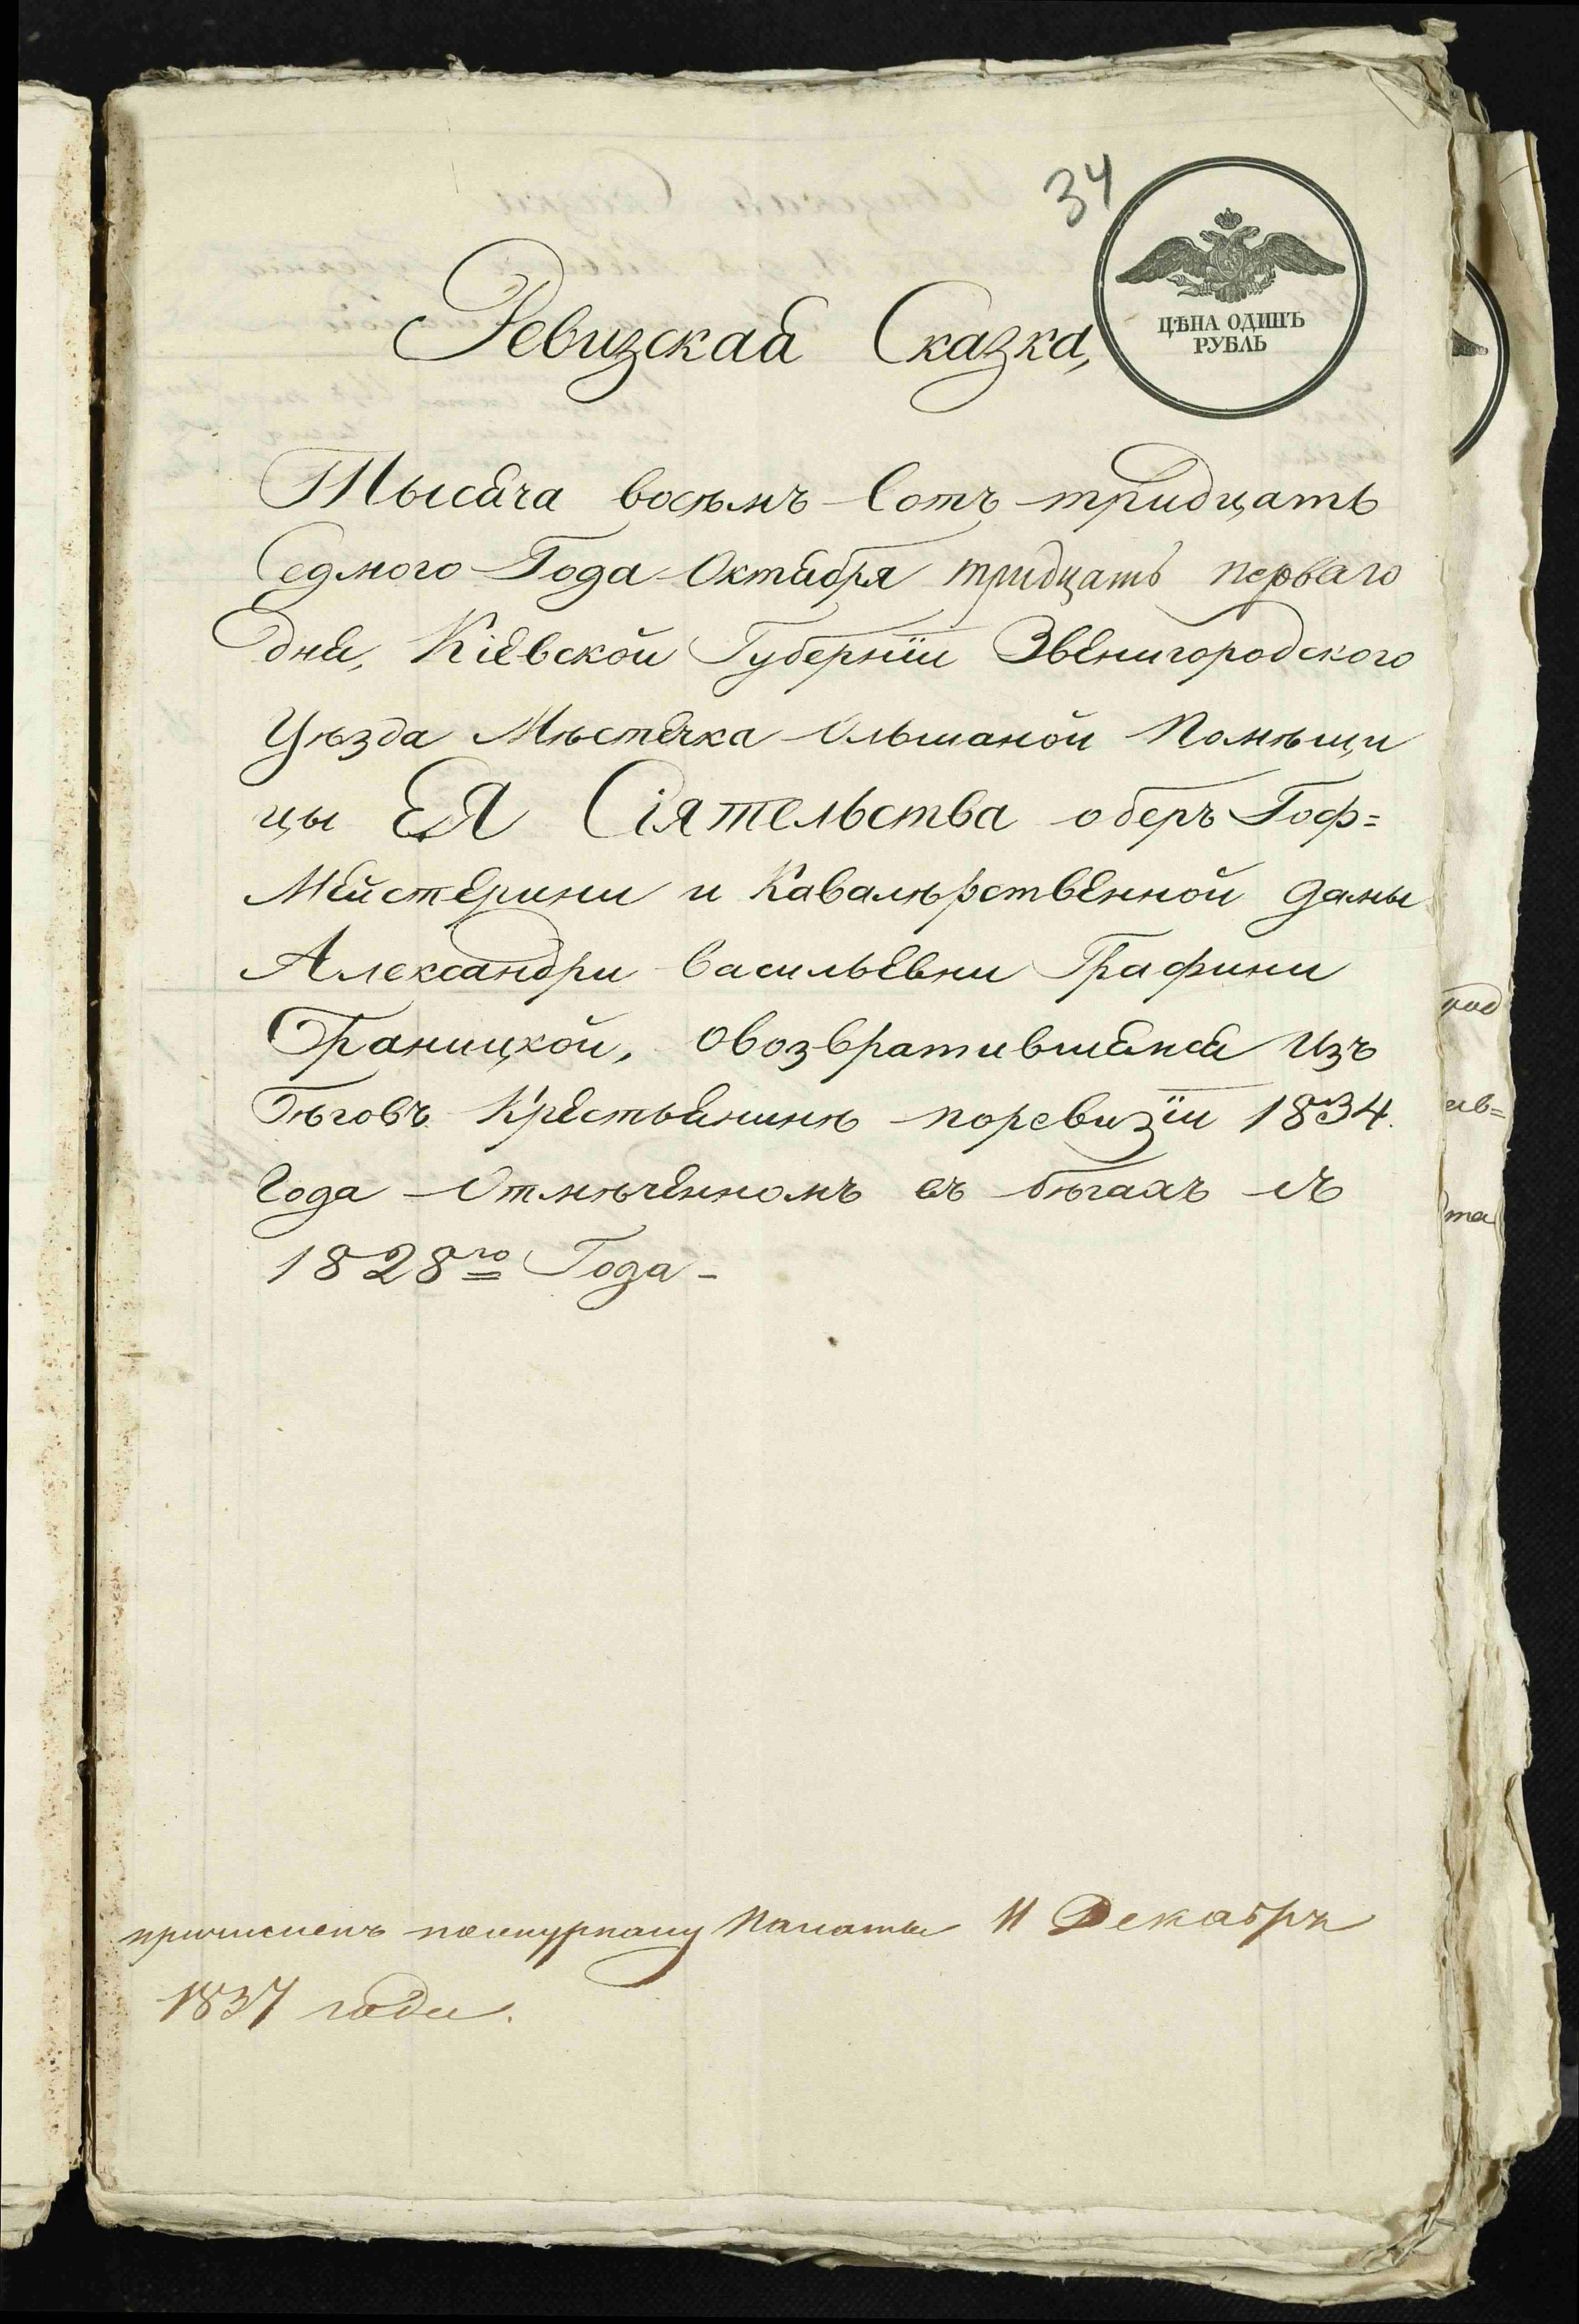 34
ЦѢНА ОДИНЪ
РУБЛЬ
Ревизская Сказка,
Тысяча восемъ Сотъ тридцать
Седмого Года Октября тридцать перваго
дня, Кіевской Губерніи Звенигородского
Уѣзда Мѣстечка Ольшаной Помѣщи
цы ЕЯ Сіятельства оберъ Гоф=
Мейстерини и Кавалѣрственной дамы
Александри Васильевни Графини
Браницкой, овозвратившемся Изъ
Бѣговъ Крестьянинѣ поревизіи 1834.
Года Отмѣченномъ въ бѣгахъ съ
1828го Года -
причисленъ Палаты 11 Декабря
1837 года.